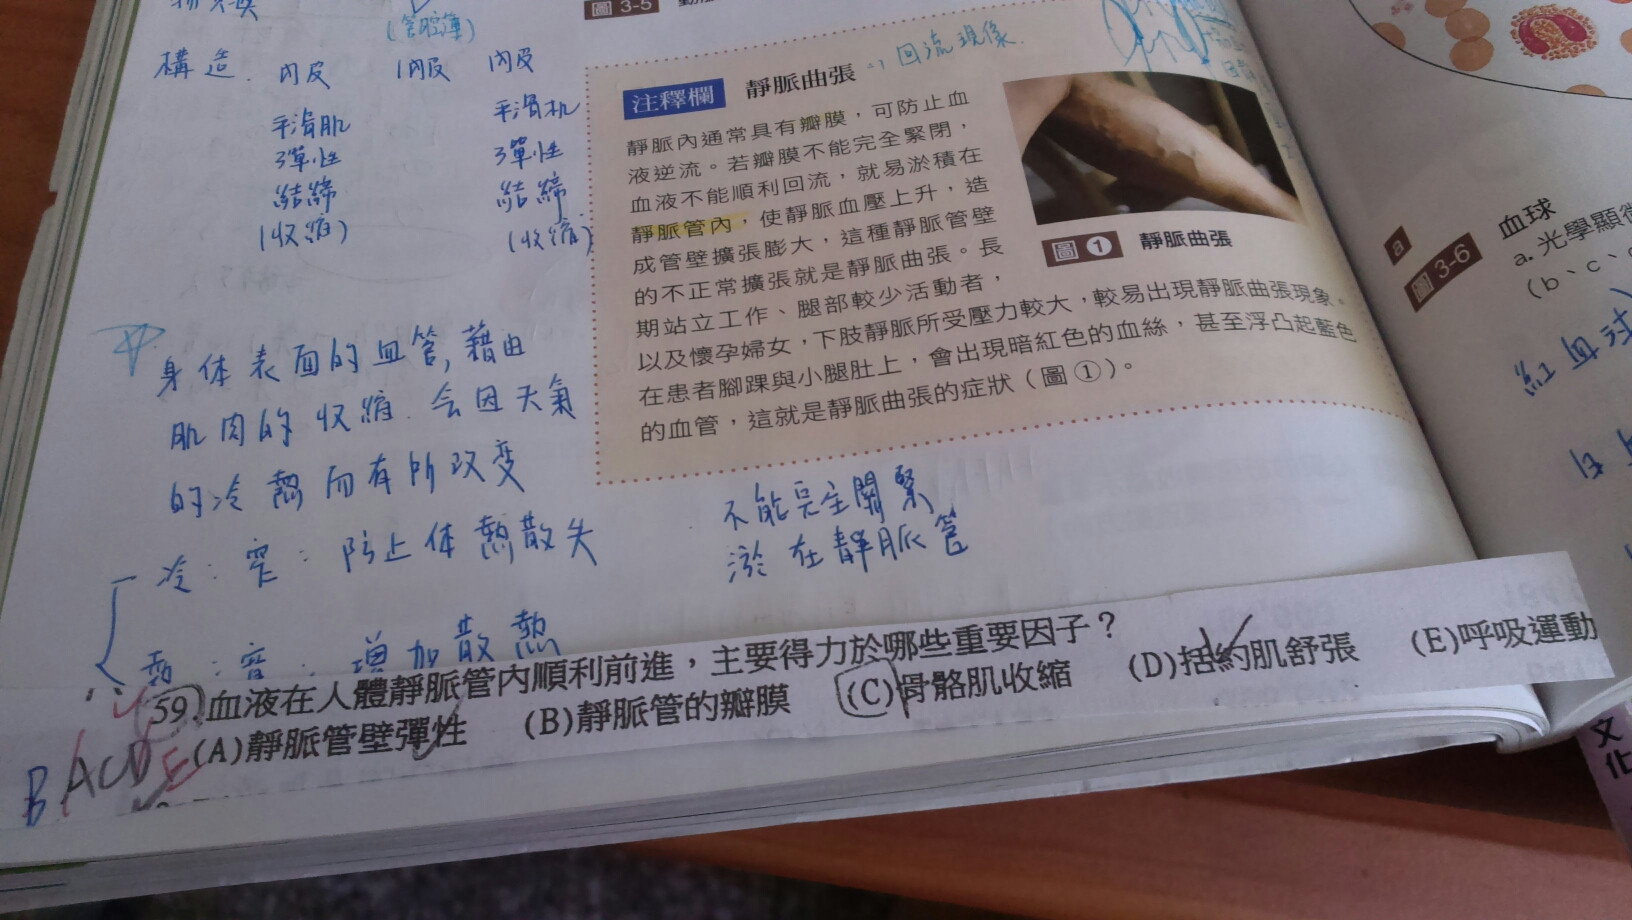 (管腔薄)
構造. 內皮 內皮 內皮
平滑肌 平滑肌
彈性 彈性
結締 結締
(收縮) (收縮)
身体表面的血管,藉由
肌肉的收縮.会因天氣
的冷熱而有所改变
冷:窄:防止体熱散失
增加散熱
圖 3-5
回流現像.
注釋欄 靜脈曲張
靜脈內通常具有瓣膜,可防止血
液逆流。若瓣膜不能完全緊閉,
血液不能順利回流,就易淤積在
靜脈管內,使靜脈血壓上升,造
成管壁擴張膨大,這種靜脈管壁
的不正常擴張就是靜脈曲張。長
期站立工作、腿部較少活動者,
以及懷孕婦女,下肢靜脈所受壓力較大,較易出現靜脈曲張現象。
在患者腳踝與小腿肚上,會出現暗紅色的血絲,甚至浮凸起藍色
的血管,這就是靜脈曲張的症狀(圖①)。
圖❶ 靜脈曲張
不能完全關緊
淤在靜脈管
a
圖 3-6
血球
a.光學顯微
(b、c、
紅血球
59.血液在人體靜脈管內順利前進,主要得力於哪些重要因子?
(A)靜脈管壁彈性 (B)靜脈管的瓣膜 (C)骨骼肌收縮 (D)括約肌舒張 (E)呼吸運動
B ACD E
文化